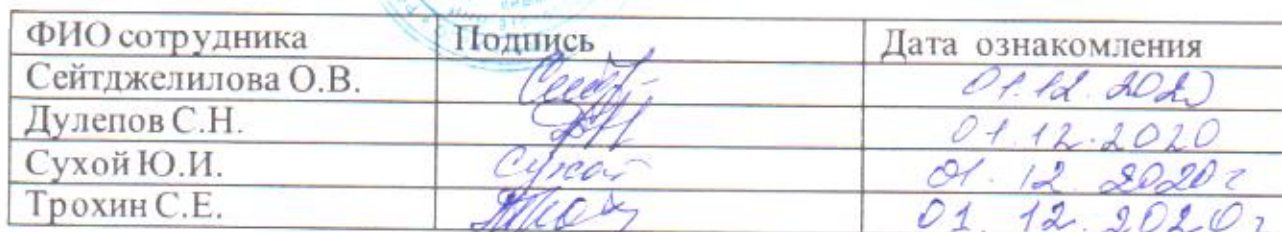 ФИО сотрудника Подпись Дата ознакомления
Сейтджелилова О.В. 01.12.2020
Дулепов С.Н. 01.12.2020
Сухой Ю.И. Сухой 01.12.2020г
Трохин С.Е. 01.12.2020г